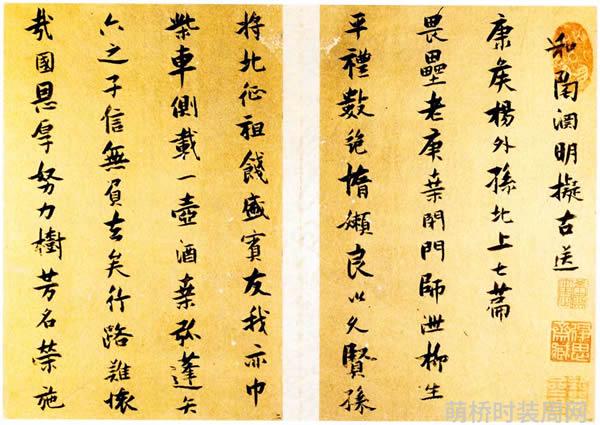 和陶淵明擬古送
康侯楊外孫北上七篇
畏壘老庚桑閉門師泄柳生
平禮數絶惰嬾良以久賢孫
將北征祖餞盛賓友我亦巾
柴車側載一壺酒桑弧蓬矢
六之子信無負去矣行路難懷
哉國恩厚努力樹芳名榮施
萌桥时装周网